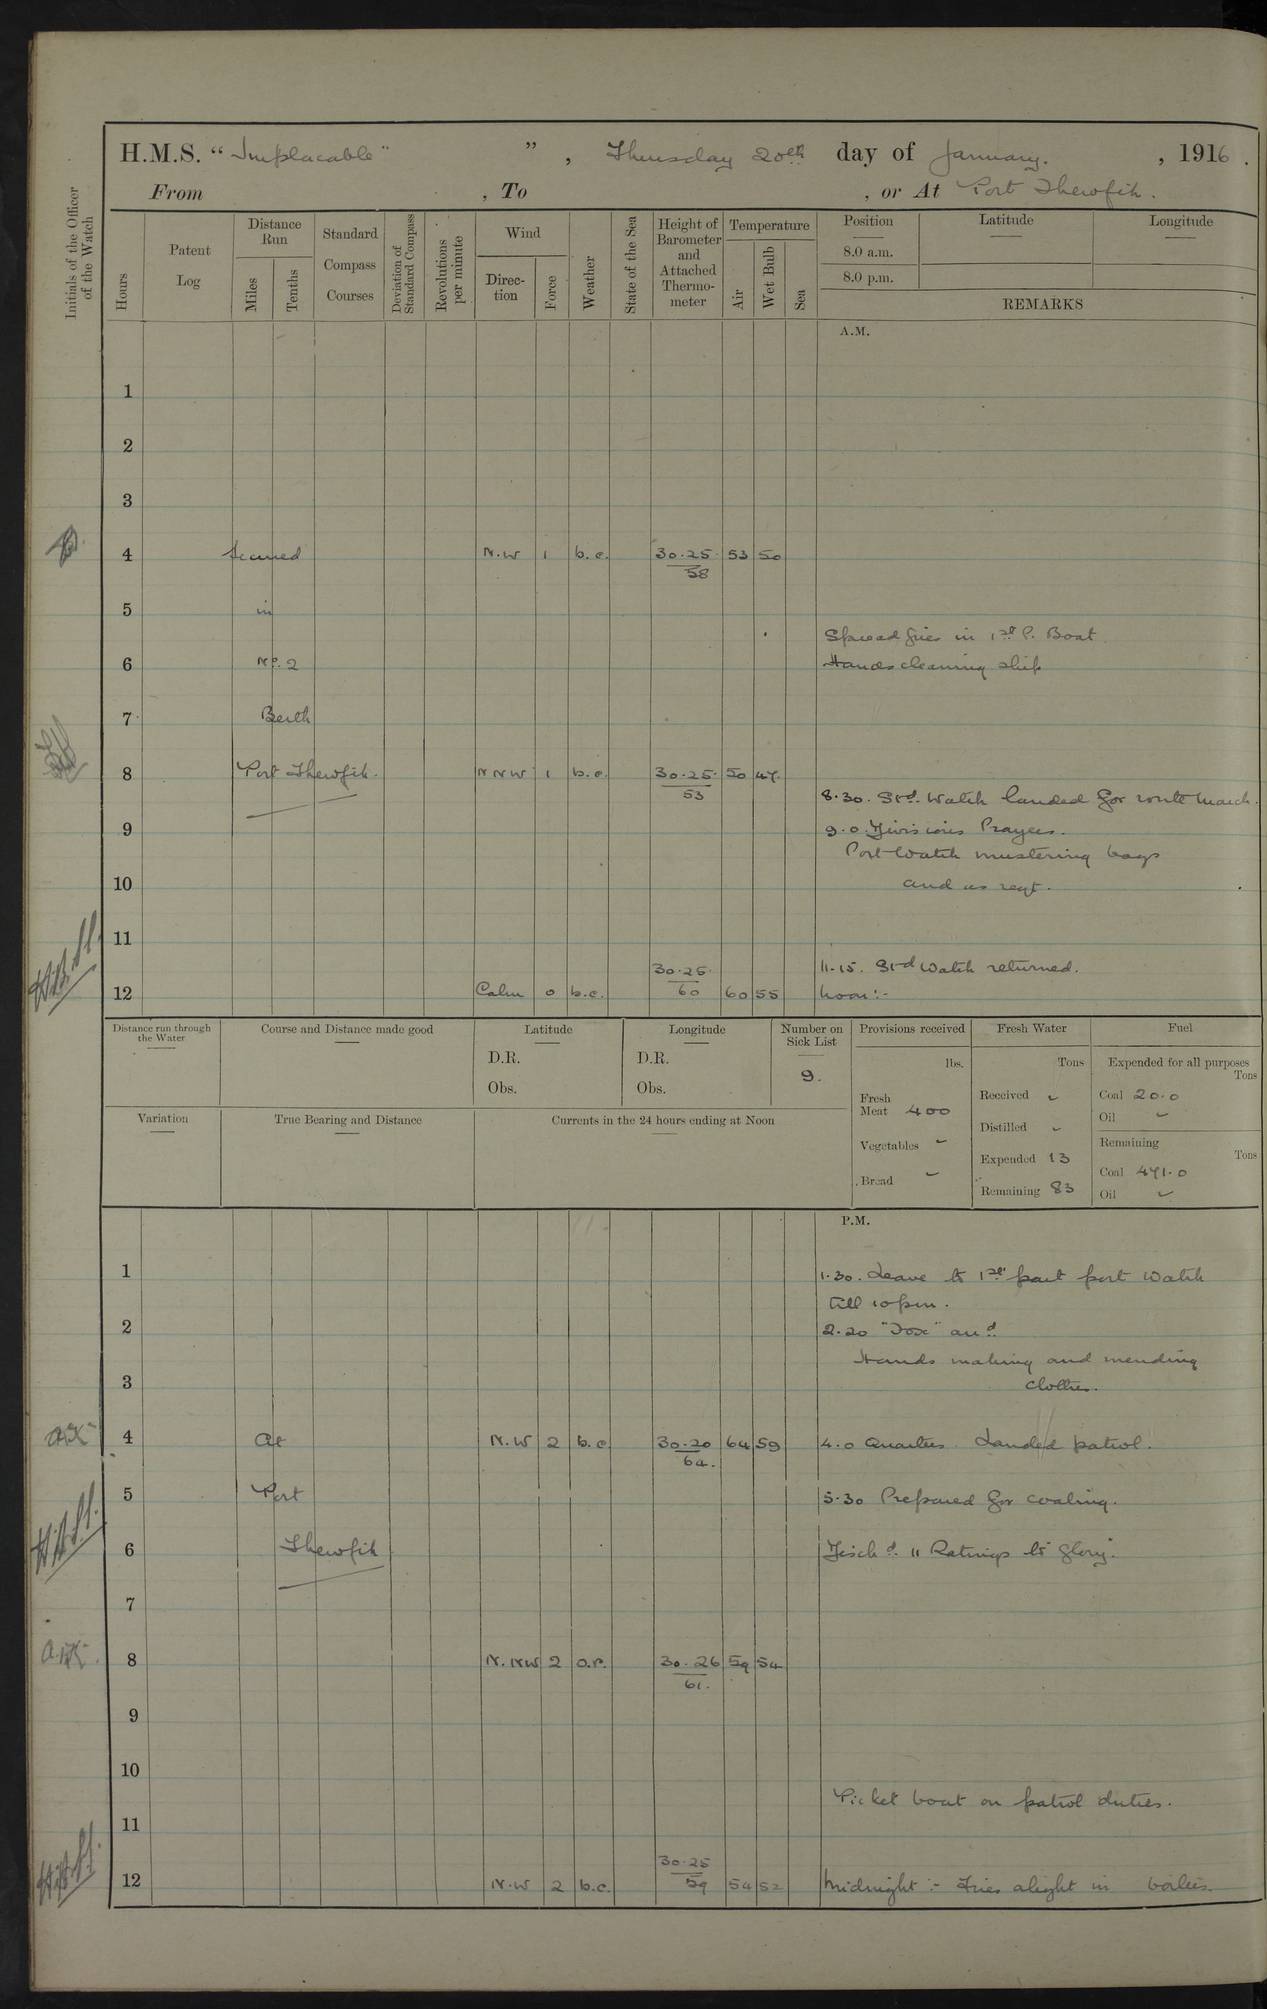 H.M.S. "Implacable" ", Thursday 20th day of January. , 1916.
From , To , or At Port Thewfik.
Initials of the Officer of the Watch
Hours
Patent Log
Distance Run
Miles
Tenths
Standard Compass Courses
Deviation of Standard Compass
Revolutions per minute
Wind
Direction
Force
Weather
State of the Sea
Height of Barometer and Attached Thermometer
Temperature
Air
Wet Bulb
Sea
Position
Latitude
Longitude
8.0 a.m.
8.0 p.m.
REMARKS
A.M.
1
2
3
4 Secured N.W 1 b.c. 30.25 58 53 50
5 in
Spread fires in 1st P. Boat
6 No. 2 Hands cleaning ship
7 Berth
8 Port Thewfik. N N W 1 b.c. 30.25 53 50 47
8.30. Std. Watch landed for route march.
9 9.0. Divisions Prayers.
Port Watch mustering bags
10 and as reqt.
11
11.15. Std Watch returned.
12 Calm 0 b.c. 30.25 60 60 55 Noon:-
Distance run through the Water
Course and Distance made good
Latitude
D.R.
Obs.
Longitude
D.R.
Obs.
Number on Sick List
9.
Provisions received
lbs.
Fresh Meat 400
Vegetables -
Bread -
Fresh Water
Tons
Received -
Distilled -
Expended 13
Remaining 83
Fuel
Expended for all purposes
Tons
Coal 20.0
Oil -
Remaining
Tons
Coal 471.0
Oil -
Variation
True Bearing and Distance
Currents in the 24 hours ending at Noon
P.M.
1 1.30. Leave to 1st part port Watch
till 10 pm.
2 2.20 "Fox" arrd.
Hands making and mending
3 clothes.
4 At N.W 2 b.c 30.20 64. 64 59 4.0 Quarters. Landed patrol.
5 Port 5.30 Prepared for coaling.
6 Thewfik Disch d. 11 Ratings to Glory.
7
8 N.NW 2 30.26 61. 59 54
9
10
Picket boat on patrol duties.
11
12 N.W 2 b.c. 30.25 59 54 52 Midnight:- Fires alight in boilers.